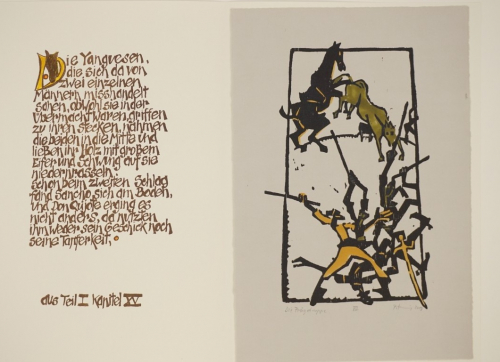 Die Yanguesen,
die sich da von
zwei einzelnen
Männern misshandelt
sahen, obwohl sie in der
Übermacht waren, griffen
zu ihren Stecken, nahmen
die beiden in die Mitte und
ließen ihr Holz mit großem
Eifer und Schwung auf sie
niederprasseln.
Schon beim zweiten Schlag
fand Sancho sich am Boden,
und Don Quijote erging es
nicht anders, da nützten
ihm weder sein Geschick noch
seine Tapferkeit.
aus Teil I Kapitel XV